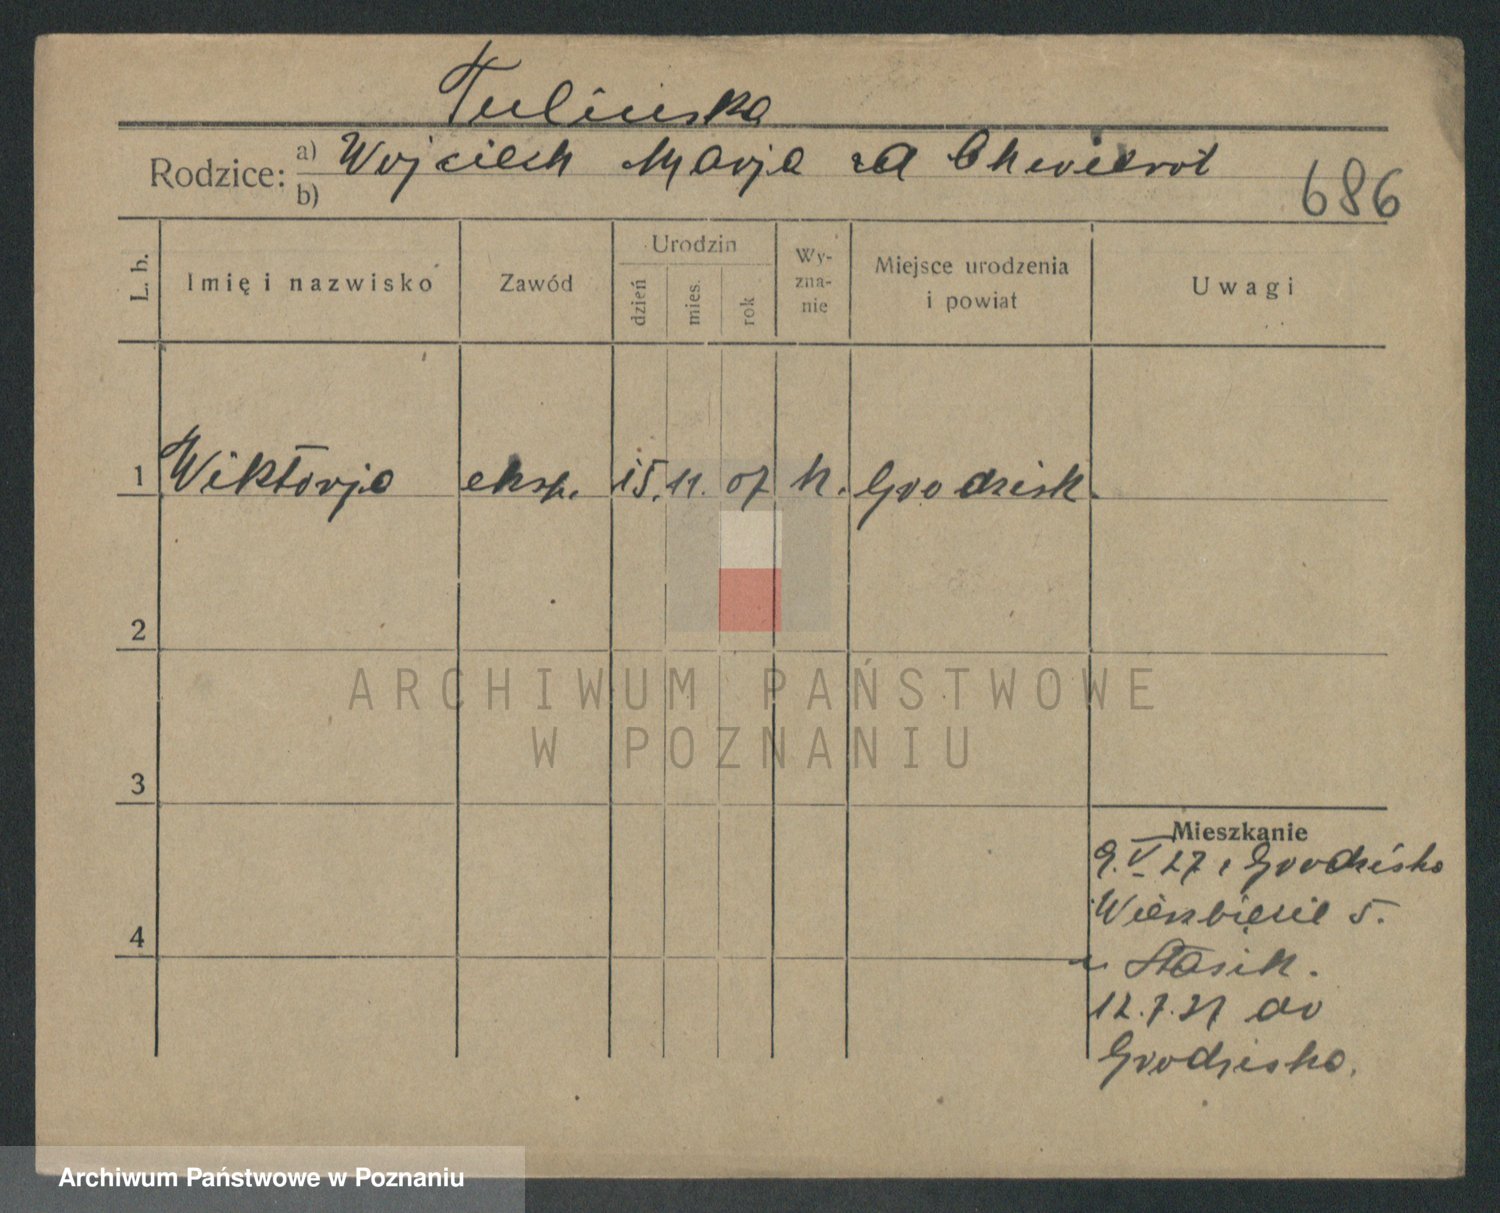 Tulinska
Rodzice: a) Wojciech Marja
b)
686
L. b.
Imię i nazwisko
Zawód
Urodzin
dzień
mies.
rok
Wy-
zna-
nie
Miejsce urodzenia
i powiat
Uwagi
1 Wiktorja eksp. 15. 11. 07 k. Grodzisk.
2
3
4
Mieszkanie
9.V 27 z Grodziska
Wierzbięcie 5.
u Stasik.
12.7.27 do
Grodziska.
ARCHIWUM PAŃSTWOWE
W POZNANIU
Archiwum Państwowe w Poznaniu